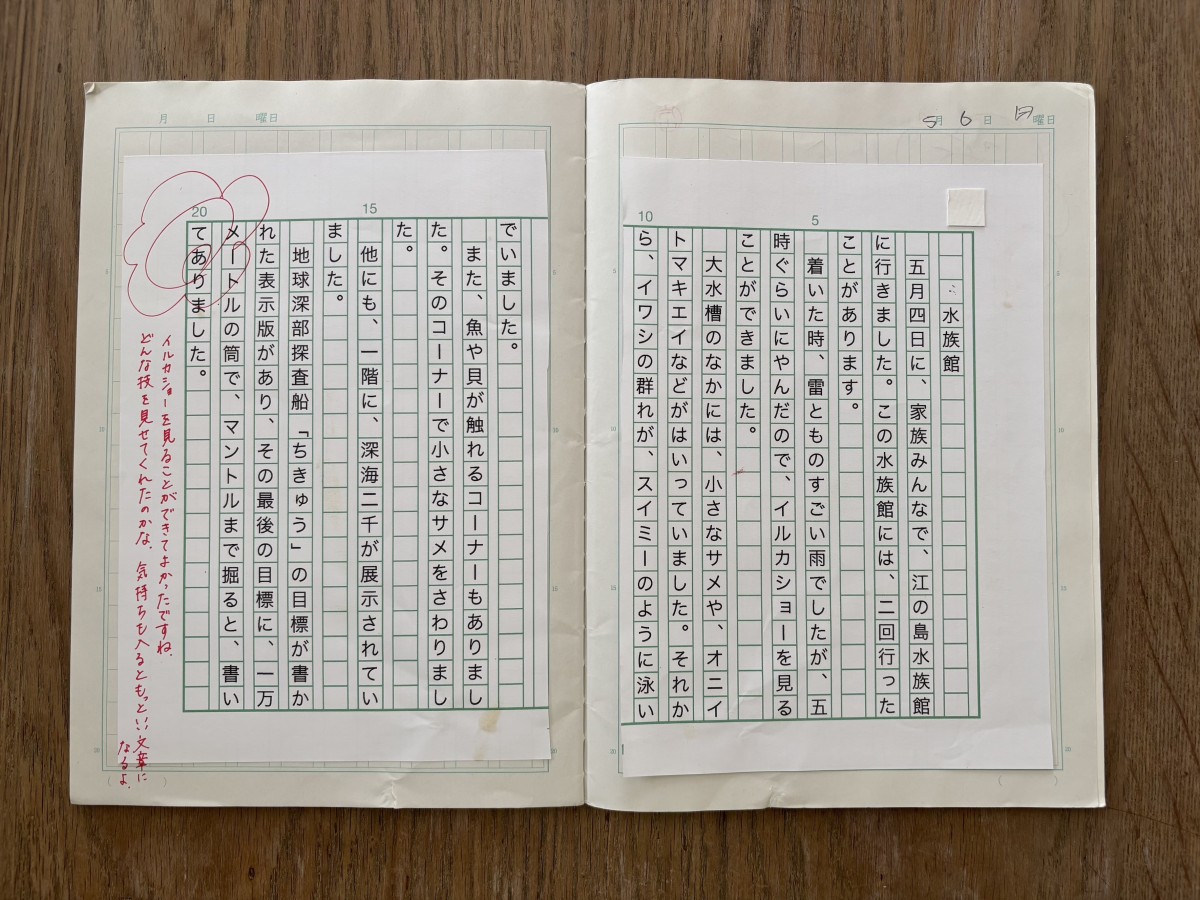 5月6日 曜日
水族館
五月四日に、家族みんなで、江の島水族館
に行きました。この水族館には、二回行った
ことがあります。
5
着いた時、雷とものすごい雨でしたが、五
時ぐらいにやんだので、イルカショーを見る
ことができました。
大水槽のなかには、小さなサメや、オニイ
トマキエイなどがはいっていました。それか
10
ら、イワシの群れが、スイミーのように泳い
月 日 曜日
でいました。
また、魚や貝が触れるコーナーもありまし
た。そのコーナーで小さなサメをさわりまし
た。
15
他にも、一階に、深海二千が展示されてい
ました。
地球深部探査船「ちきゅう」の目標が書か
れた表示版があり、その最後の目標に、一万
メートルの筒で、マントルまで掘ると、書い
20
てありました。
イルカショーを見ることができてよかったですね。
どんな技を見せてくれたのかな。気持ちも入るともっといい文章に
なるよ。